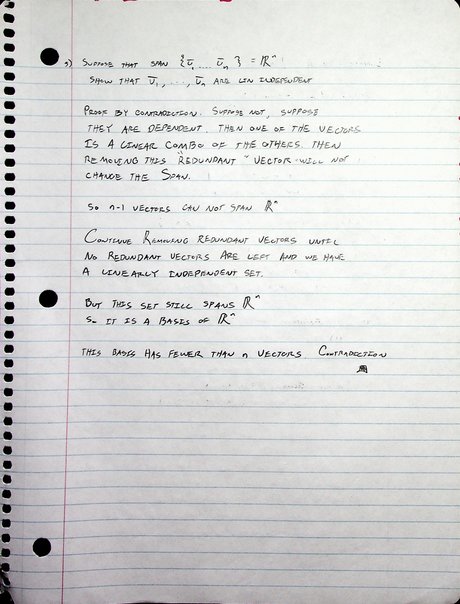 3) SUPPOSE THAT SPAN {v̄₁ ... v̄ₙ} = ℝⁿ
SHOW THAT v̄₁, ..., v̄ₙ ARE LIN INDEPENDENT
PROOF BY CONTRADICTION. SUPPOSE NOT, SUPPOSE
THEY ARE DEPENDENT. THEN ONE OF THE VECTORS
IS A LINEAR COMBO OF THE OTHERS. THEN
REMOVING THIS "REDUNDANT" VECTOR WILL NOT
CHANGE THE SPAN.
SO n-1 VECTORS CAN NOT SPAN ℝⁿ
CONTINUE REMOVING REDUNDANT VECTORS UNTIL
NO REDUNDANT VECTORS ARE LEFT AND WE HAVE
A LINEARLY INDEPENDENT SET.
BUT THIS SET STILL SPANS ℝⁿ
SO IT IS A BASIS OF ℝⁿ
THIS BASIS HAS FEWER THAN n VECTORS. CONTRADICTION